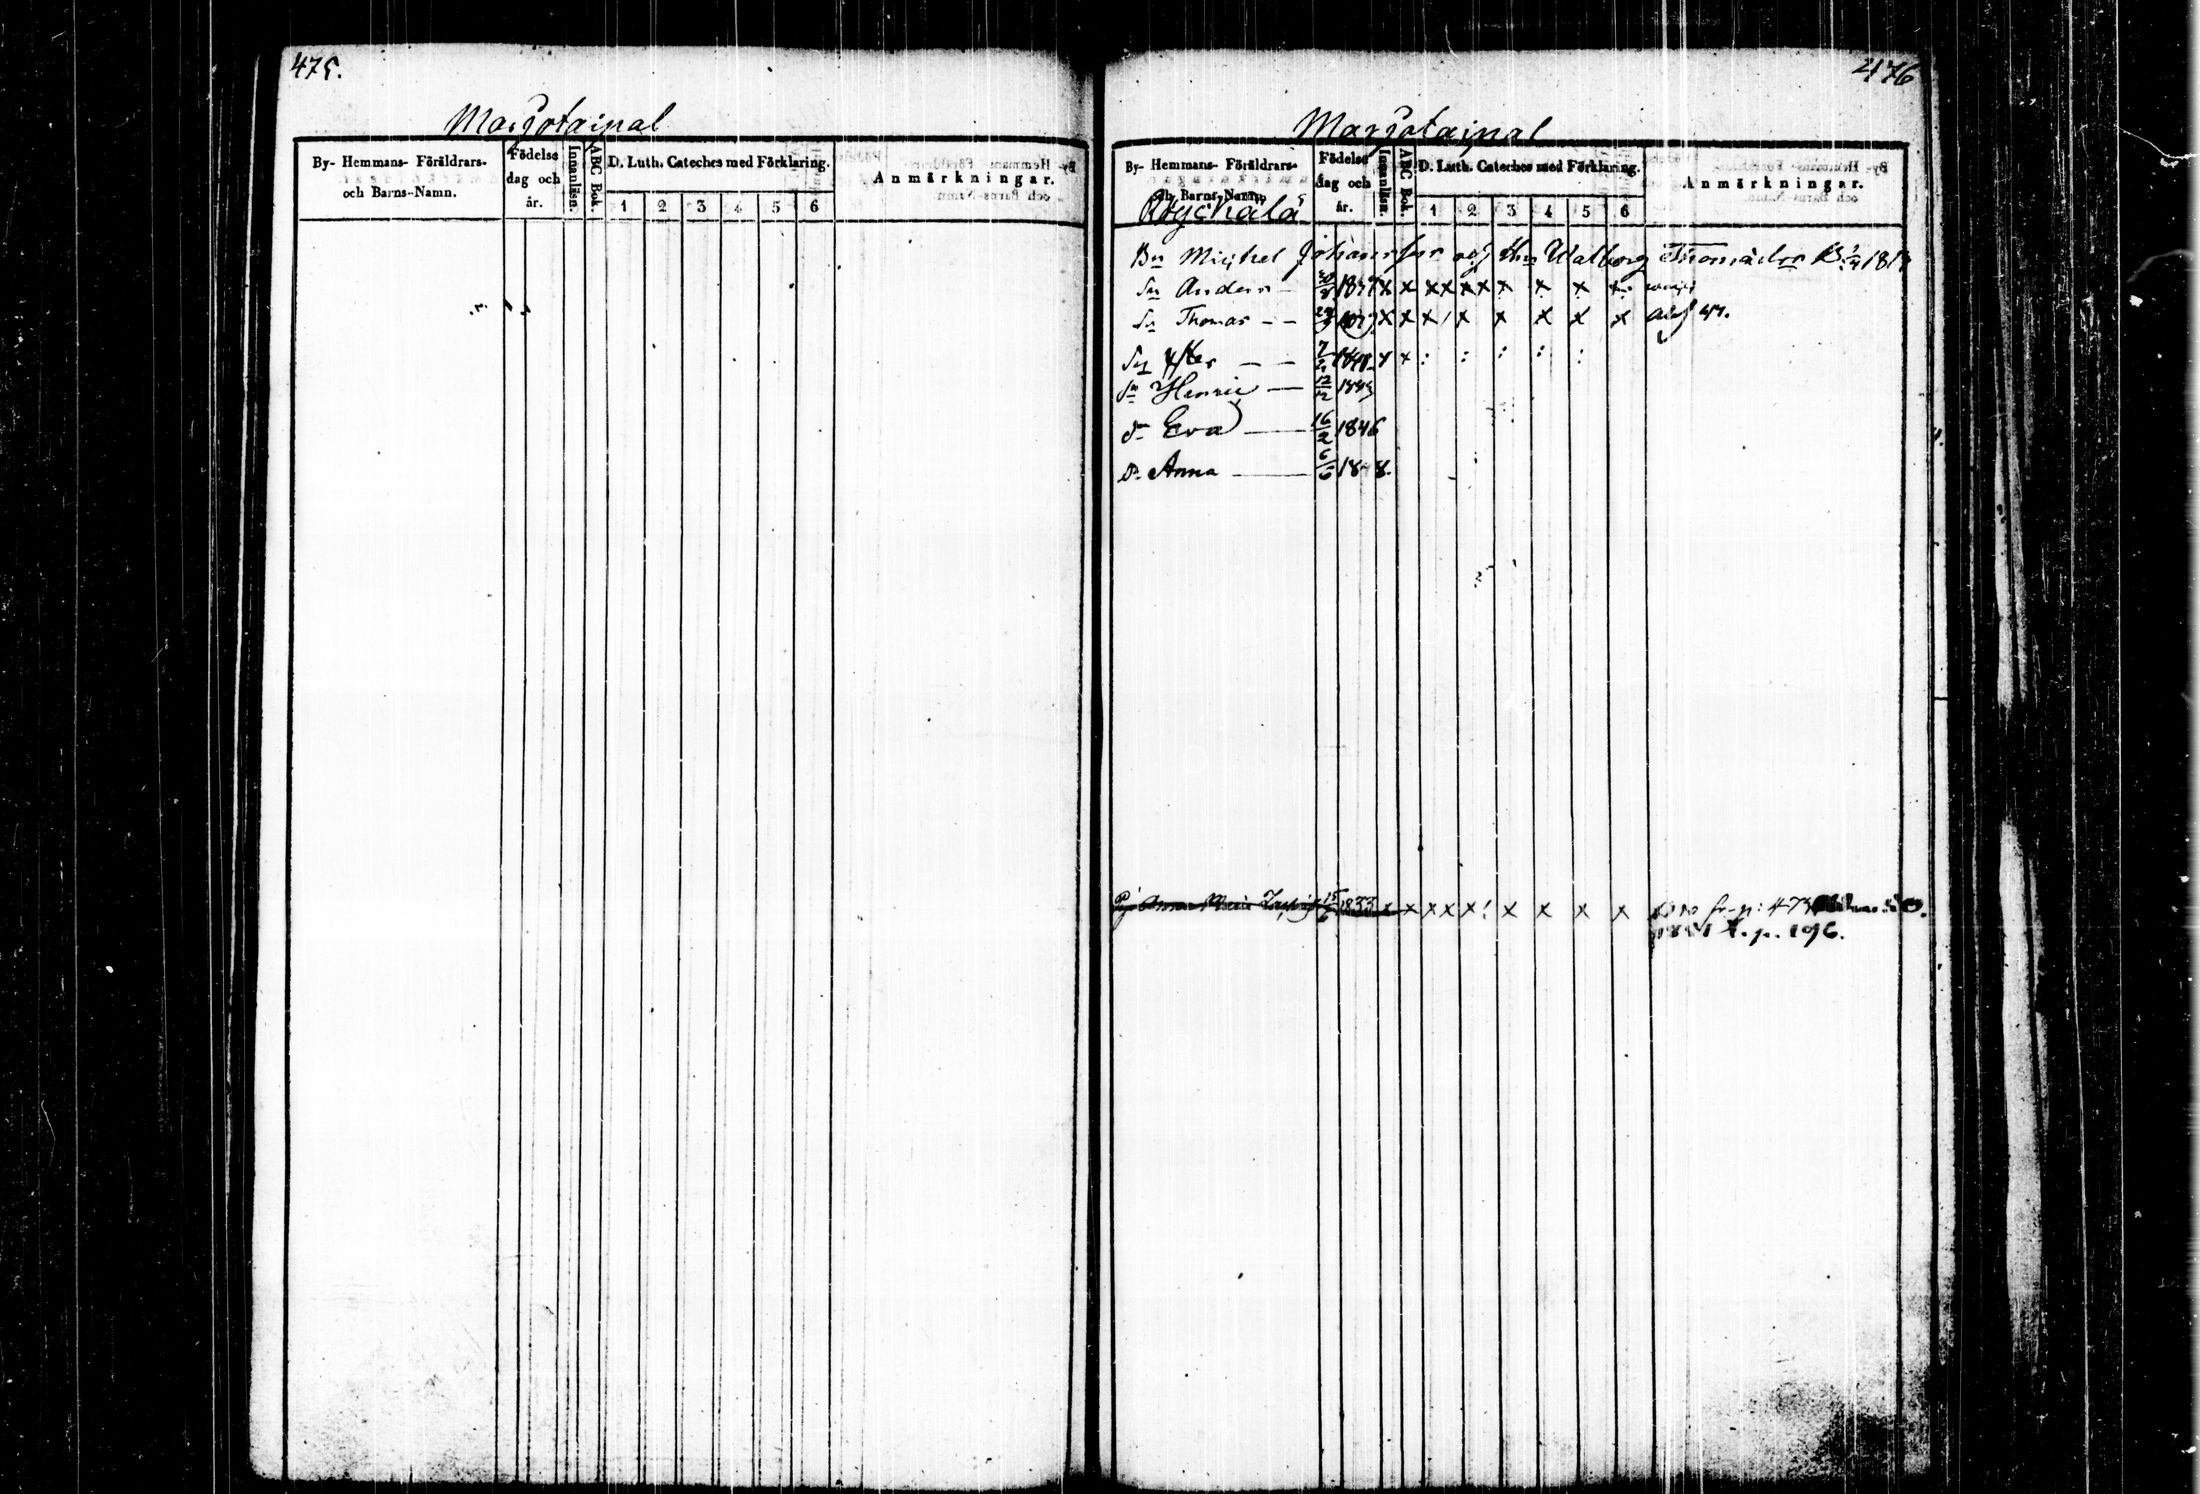 475.
Marjotaipal
By- Hemmans- Föräldrars- och Barns-Namn.
Födelse dag och år.
Innanläsn.
ABC Bok.
D. Luth. Cateches med Förklaring.
1 2 3 4 5 6
Anmärkningar.
476
Marjotaipal
By- Hemmans- Föräldrars- och Barns-Namn.
Födelse dag och år.
Innanläsn.
ABC Bok.
D. Luth. Cateches med Förklaring.
1 2 3 4 5 6
Anmärkningar.
Bn Michel Johansson och Hu Walborg Thomasdr
Sn Anders x x x x x x x x x
Sn Thomas - - x x x x x x x x
Sn - - 7/2 x : : : : :
Sn Henric — 12/12
dr Eva — 16/2 1846
Dr Anna — 6/6
Anna Maria 15/6 1833 x x x x x ! x x x x fr. p: 473
t. p. 196.